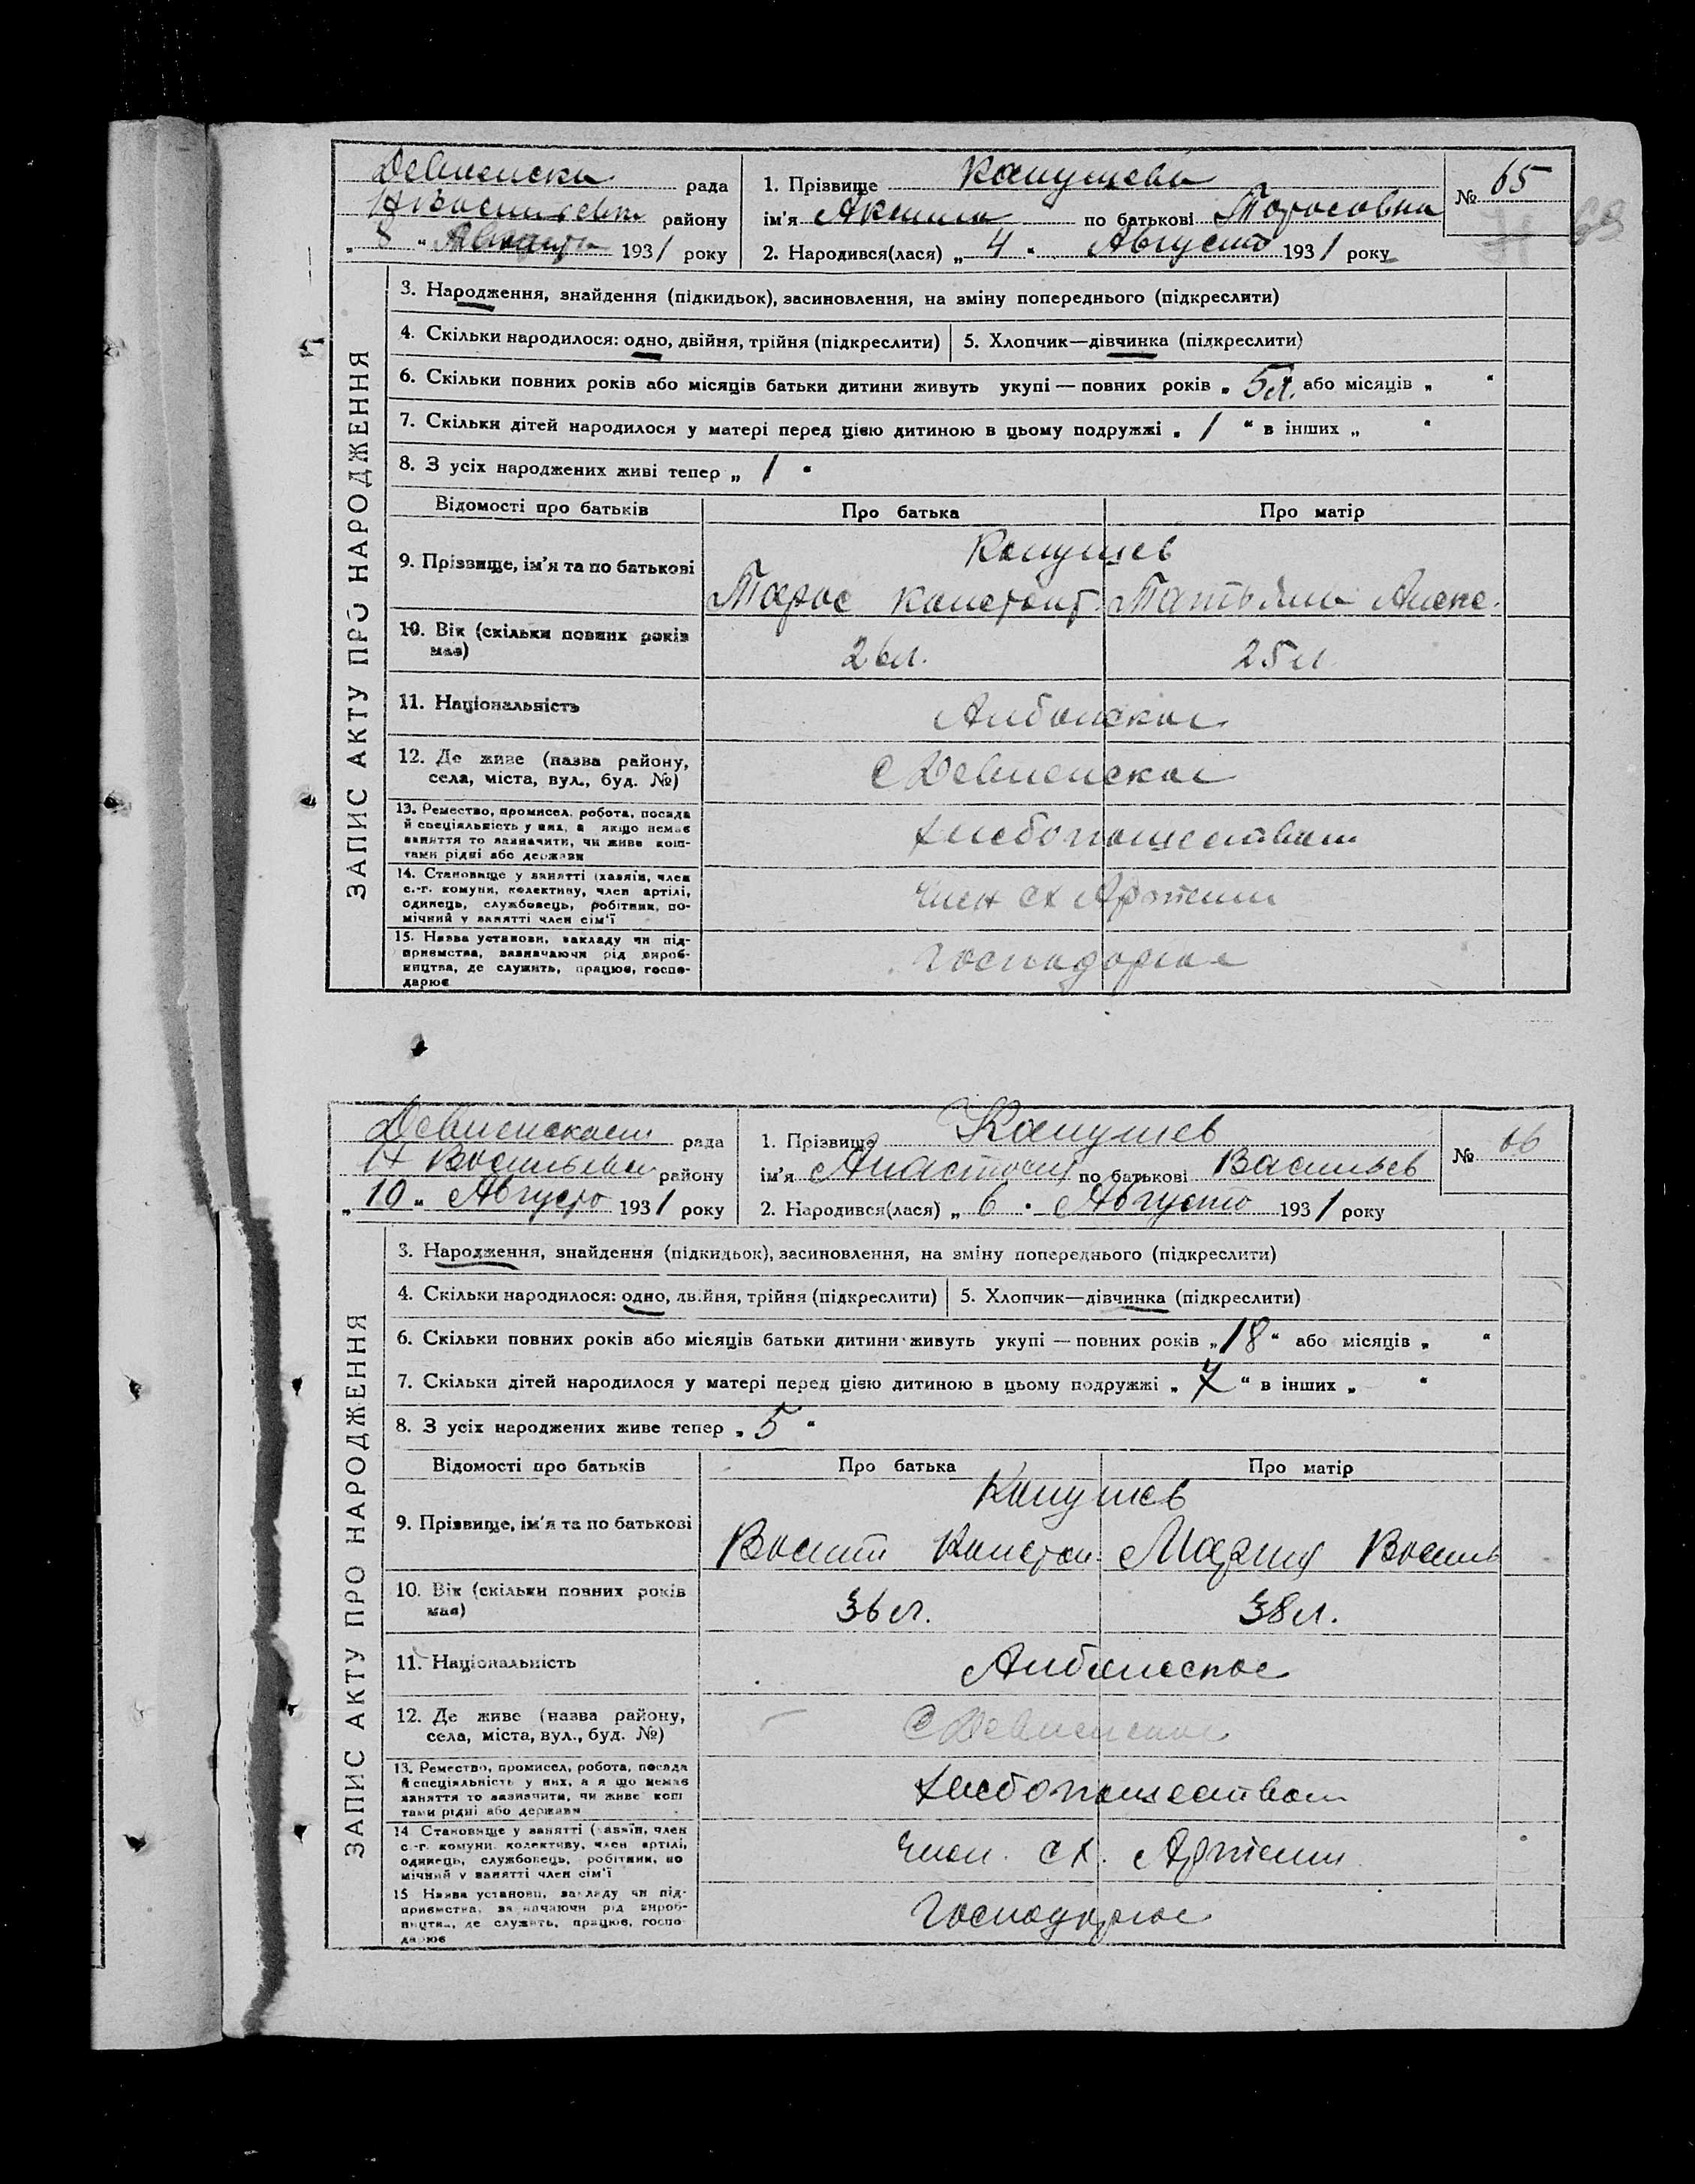 Девненски рада
Н Васильевк району
„ 8 “ Августа 1931 року
1. Прізвище Капушева
ім'я Аксинья по батькові Тарасовна
2. Народився(лася) „ 4 “ Августа 1931 року
№ 65
68
ЗАПИС АКТУ ПРО НАРОДЖЕННЯ
3. Народження, знайдення (підкидьок), засиновлення, на зміну попереднього (підкреслити)
4. Скільки народилося: одно, двійня, трійня (підкреслити) 5. Хлопчик—дівчинка (підкреслити)
6. Скільки повних років або місяців батьки дитини живуть укупі — повних років „ 5л. або місяців „ “
7. Скільки дітей народилося у матері перед цією дитиною в цьому подружжі „ 1 “ в інших „ “
8. З усіх народжених живі тепер „ 1 “
Відомості про батьків Про батька Про матір
9. Прізвище, ім'я та по батькові
Капушев
Тарас Констант. Татьяна Алекс.
10. Вік (скільки повних років має)
26л. 25л
11. Національність
Албанское
12. Де живе (назва району, села, міста, вул., буд. №)
С Девненское
13. Ремество, промисел, робота, посада й спеціяльність у них, а якщо немає заняття то зазначити, чи живе коштами рідні або держави
Хлебопашеством
14. Становище у занятті (хазяїн, член с.-г. комуни, колективу, член артілі, одинець, службовець, робітник, помічний у занятті член сім'ї
член СХ Артели
15. Назва установи, закладу чи підприємства, зазначаючи рід виробництва, де служить, працює, господарює
Господарює
Девненская рада
Н Васильевк району
„ 10 „ Августа 1931 року
1. Прізвище Капушев
ім'я Анастасия по батькові Васильев
2. Народився(лася) „ 6 “ Августа 1931 року
№ 66
ЗАПИС АКТУ ПРО НАРОДЖЕННЯ
3. Народження, знайдення (підкидьок), засиновлення, на зміну попереднього (підкреслити)
4. Скільки народилося: одно, двійня, трійня (підкреслити) 5. Хлопчик—дівчинка (підкреслити)
6. Скільки повних років або місяців батьки дитини живуть укупі — повних років „ 18 “ або місяців „ “
7. Скільки дітей народилося у матері перед цією дитиною в цьому подружжі „ 7 “ в інших „ “
8. З усіх народжених живе тепер „ 5 “
Відомості про батьків Про батька Про матір
9. Прізвище, ім'я та по батькові
Капушев
Васили Констан. Мария Василь
10. Вік (скільки повних років має)
36л. 38л.
11. Національність
Албанское
12. Де живе (назва району, села, міста, вул., буд. №)
С Девненское
13. Ремество, промисел, робота, посада й спеціяльність у них, а якщо немає заняття то зазначити, чи живе коштами рідні або держави
Хлебопашеством
14 Становище у занятті (хазяїн, член с.-г. комуни, колективу, член артілі, одинець, службовець, робітник, помічний у занятті член сім'ї
член. СХ. Артели
15 Назва установи, закладу чи підприємства, зазначаючи рід виробництва, де служить, працює, господарює
Господарює